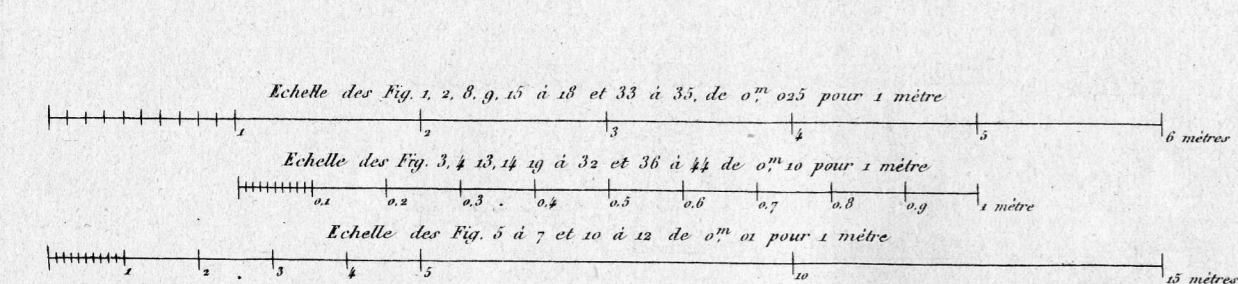 Echelle des Fig. 1, 2, 8, 9, 15 à 18 et 33 à 35, de 0,m 025 pour 1 mètre
1 2 3 4 5 6 mètres
Echelle des Fig. 3, 4 13, 14 19 à 32 et 36 à 44 de 0,m 10 pour 1 mètre
0.1 0.2 0.3 0.4 0.5 0.6 0.7 0.8 0.9 1 mètre
Echelle des Fig. 5 à 7 et 10 à 12 de 0,m 01 pour 1 mètre
1 2 3 4 5 10 15 mètres